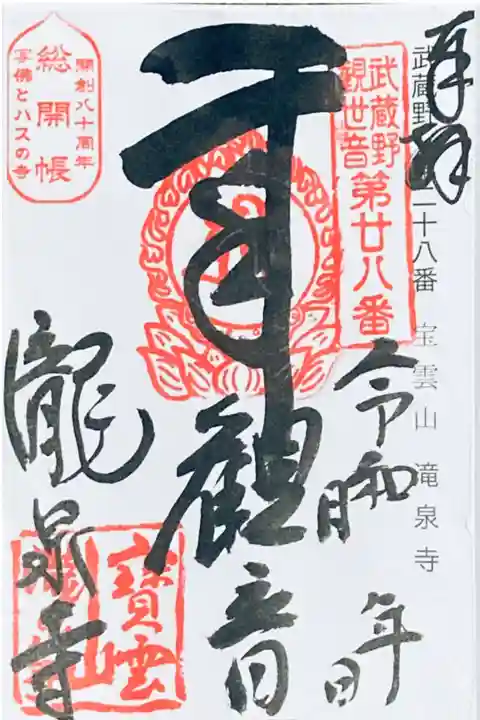 奉拝
武蔵野 二十八番 宝雲山 滝泉寺
武蔵野
観世音
第廿八番
令和 年
月 日
觀音
瀧泉寺
寶雲
山
開創八十周年
総開帳
写佛とハスの寺